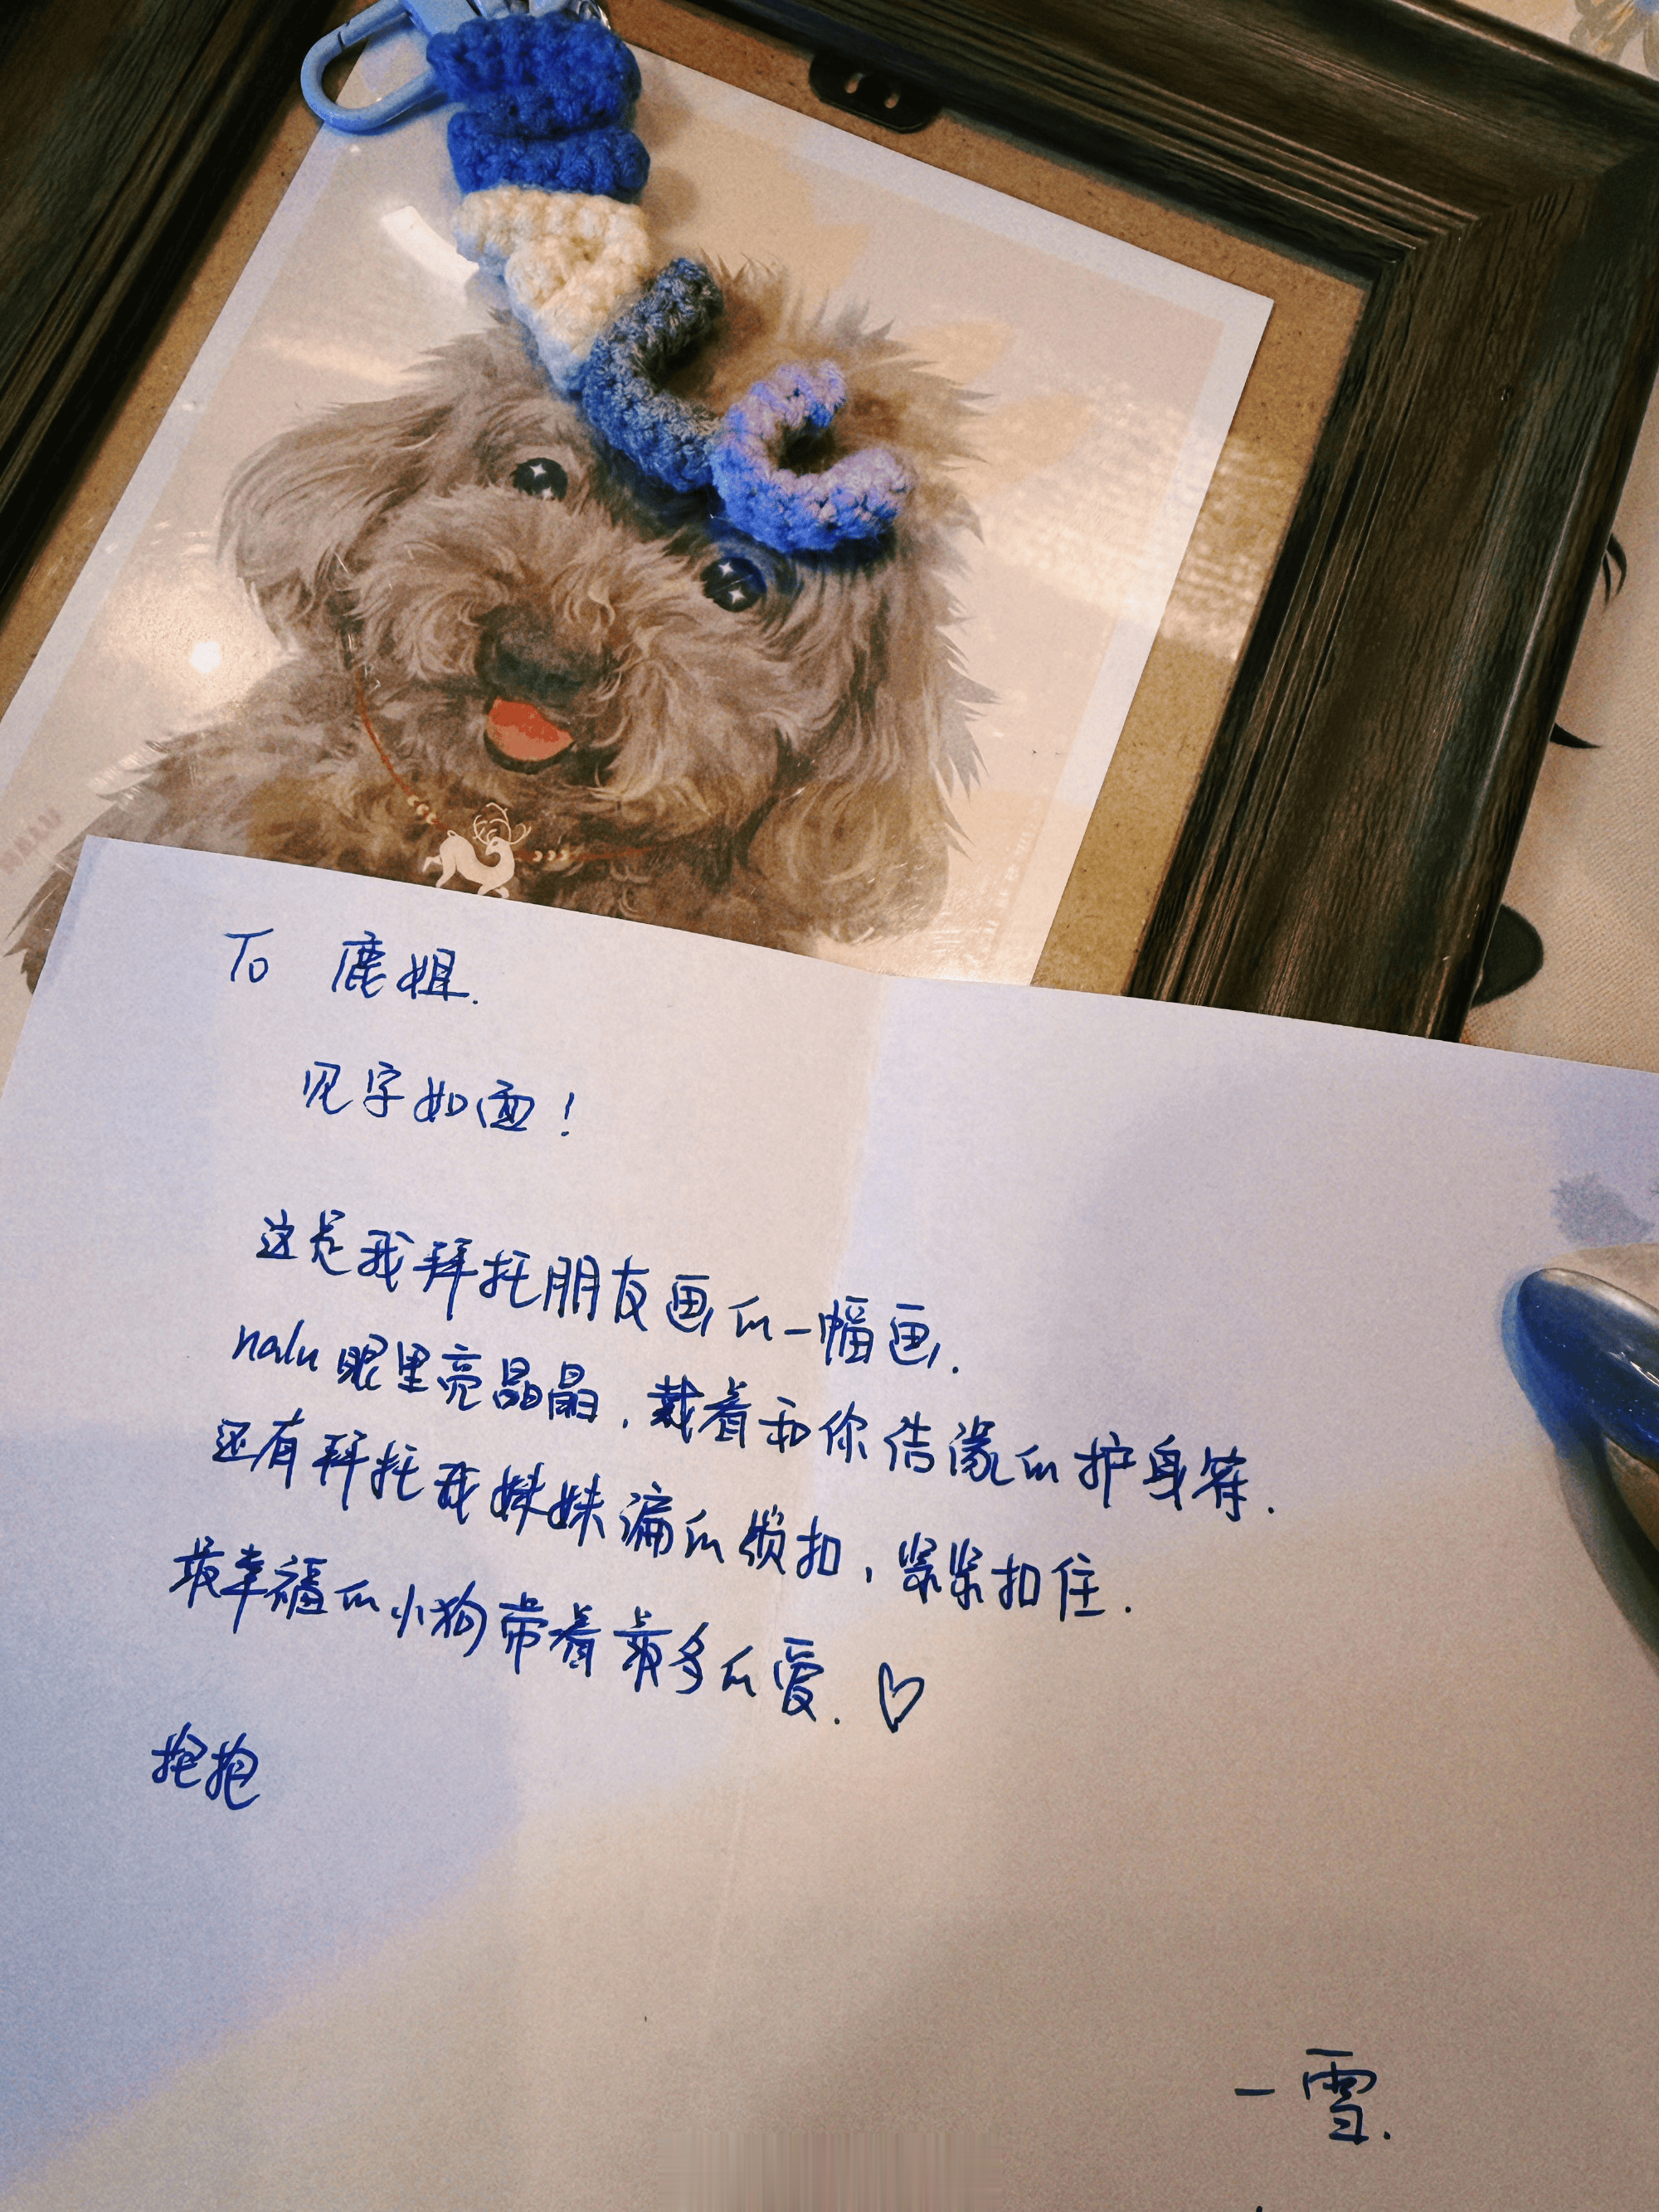 To 鹿姐.
见字如面!
这是我拜托朋友画的一幅画.
nalu眼里亮晶晶,戴着和你结缘的护身符.
还有拜托我妹妹编的锁扣,紧紧扣住.
最幸福的小狗带着最多的爱.♡
抱抱
一雪.